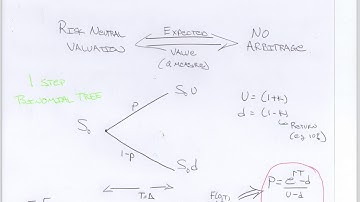 RISK NEUTRAL VALUATION
EXPECTED VALUE (Q MEASURE)
NO ARBITRAGE
1 STEP BINOMIAL TREE
S₀
P
1-P
S₀U
S₀d
U = (1+k)
d = (1-k)
RETURN
(eg 10%)
P = e^rT - d / U - d
F(0,T)